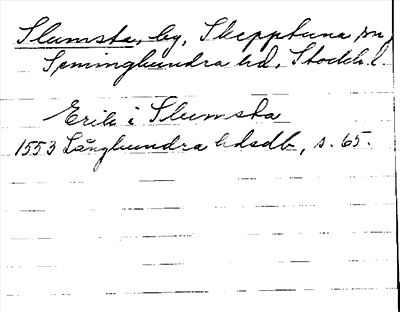 Slumsta, by, Skepptuna sn,
Seminghundra hd, Stockh. l.
Erik i Slumsta
1553 Långhundra hdsdb, s. 65.